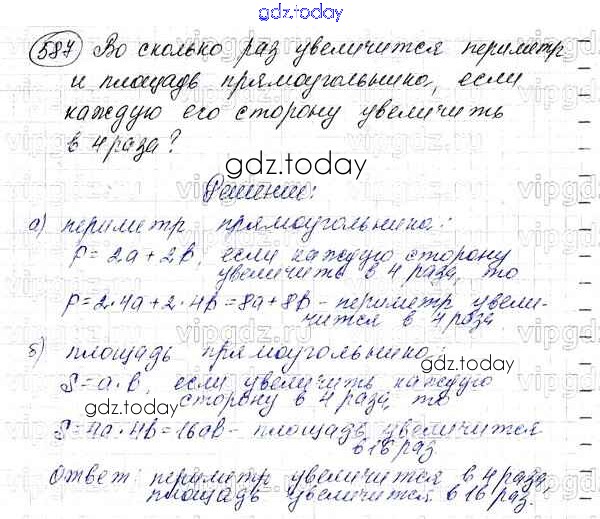 gdz.today
587 Во сколько раз увеличится периметр
и площадь прямоугольника, если
каждую его сторону увеличить
в 4 раза?
gdz.today
Решение:
а) периметр прямоугольника:
P = 2a + 2b, если каждую сторону
увеличить в 4 раза, то
P = 2·4a + 2·4b = 8a + 8b - периметр увели-
чится в 4 раза
б) площадь прямоугольника:
S = a·b, если увеличить каждую
сторону в 4 раза, то
gdz.today
S = 4a·4b = 16ab - площадь увеличится
в 16 раз.
Ответ: периметр увеличится в 4 раза,
площадь увеличится в 16 раз.
gdz.today